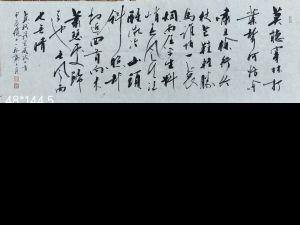 莫聽穿林打
葉聲何妨吟
嘯且徐行竹
杖芒鞋輕勝
馬誰怕一蓑
烟雨任平生料
峭春風吹酒
醒微冷山頭
斜照却
相迎回首向來
蕭瑟處歸
去也无風雨
也无晴
48*144.5